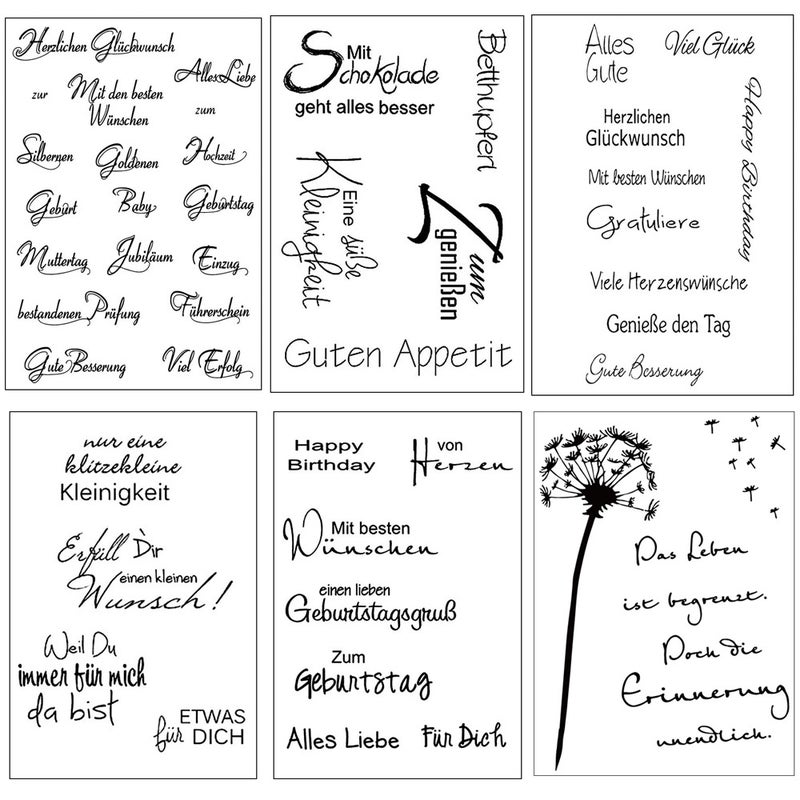 Herzlichen Glückwunsch
Alles Liebe
zur
Mit den besten
Wünschen
zum
Silbernen
Goldenen
Hochzeit
Geburt
Baby
Geburtstag
Muttertag
Jubiläum
Einzug
bestandenen Prüfung
Führerschein
Gute Besserung
Viel Erfolg
Mit
Schokolade
geht alles besser
Betthupferl
Eine süße
Kleinigkeit
Zum
genießen
Guten Appetit
Alles
Gute
Viel Glück
Happy Birthday
Herzlichen
Glückwunsch
Mit besten Wünschen
Gratuliere
Viele Herzenswünsche
Genieße den Tag
Gute Besserung
nur eine
klitzekleine
Kleinigkeit
Erfüll Dir
einen kleinen
Wunsch!
Weil Du
immer für mich
da bist
ETWAS
für DICH
Happy
Birthday
von
Herzen
Mit besten
Wünschen
einen lieben
Geburtstagsgruß
Zum
Geburtstag
Alles Liebe
Für Dich
Das Leben
ist begrenzt.
Doch die
Erinnerung
unendlich.